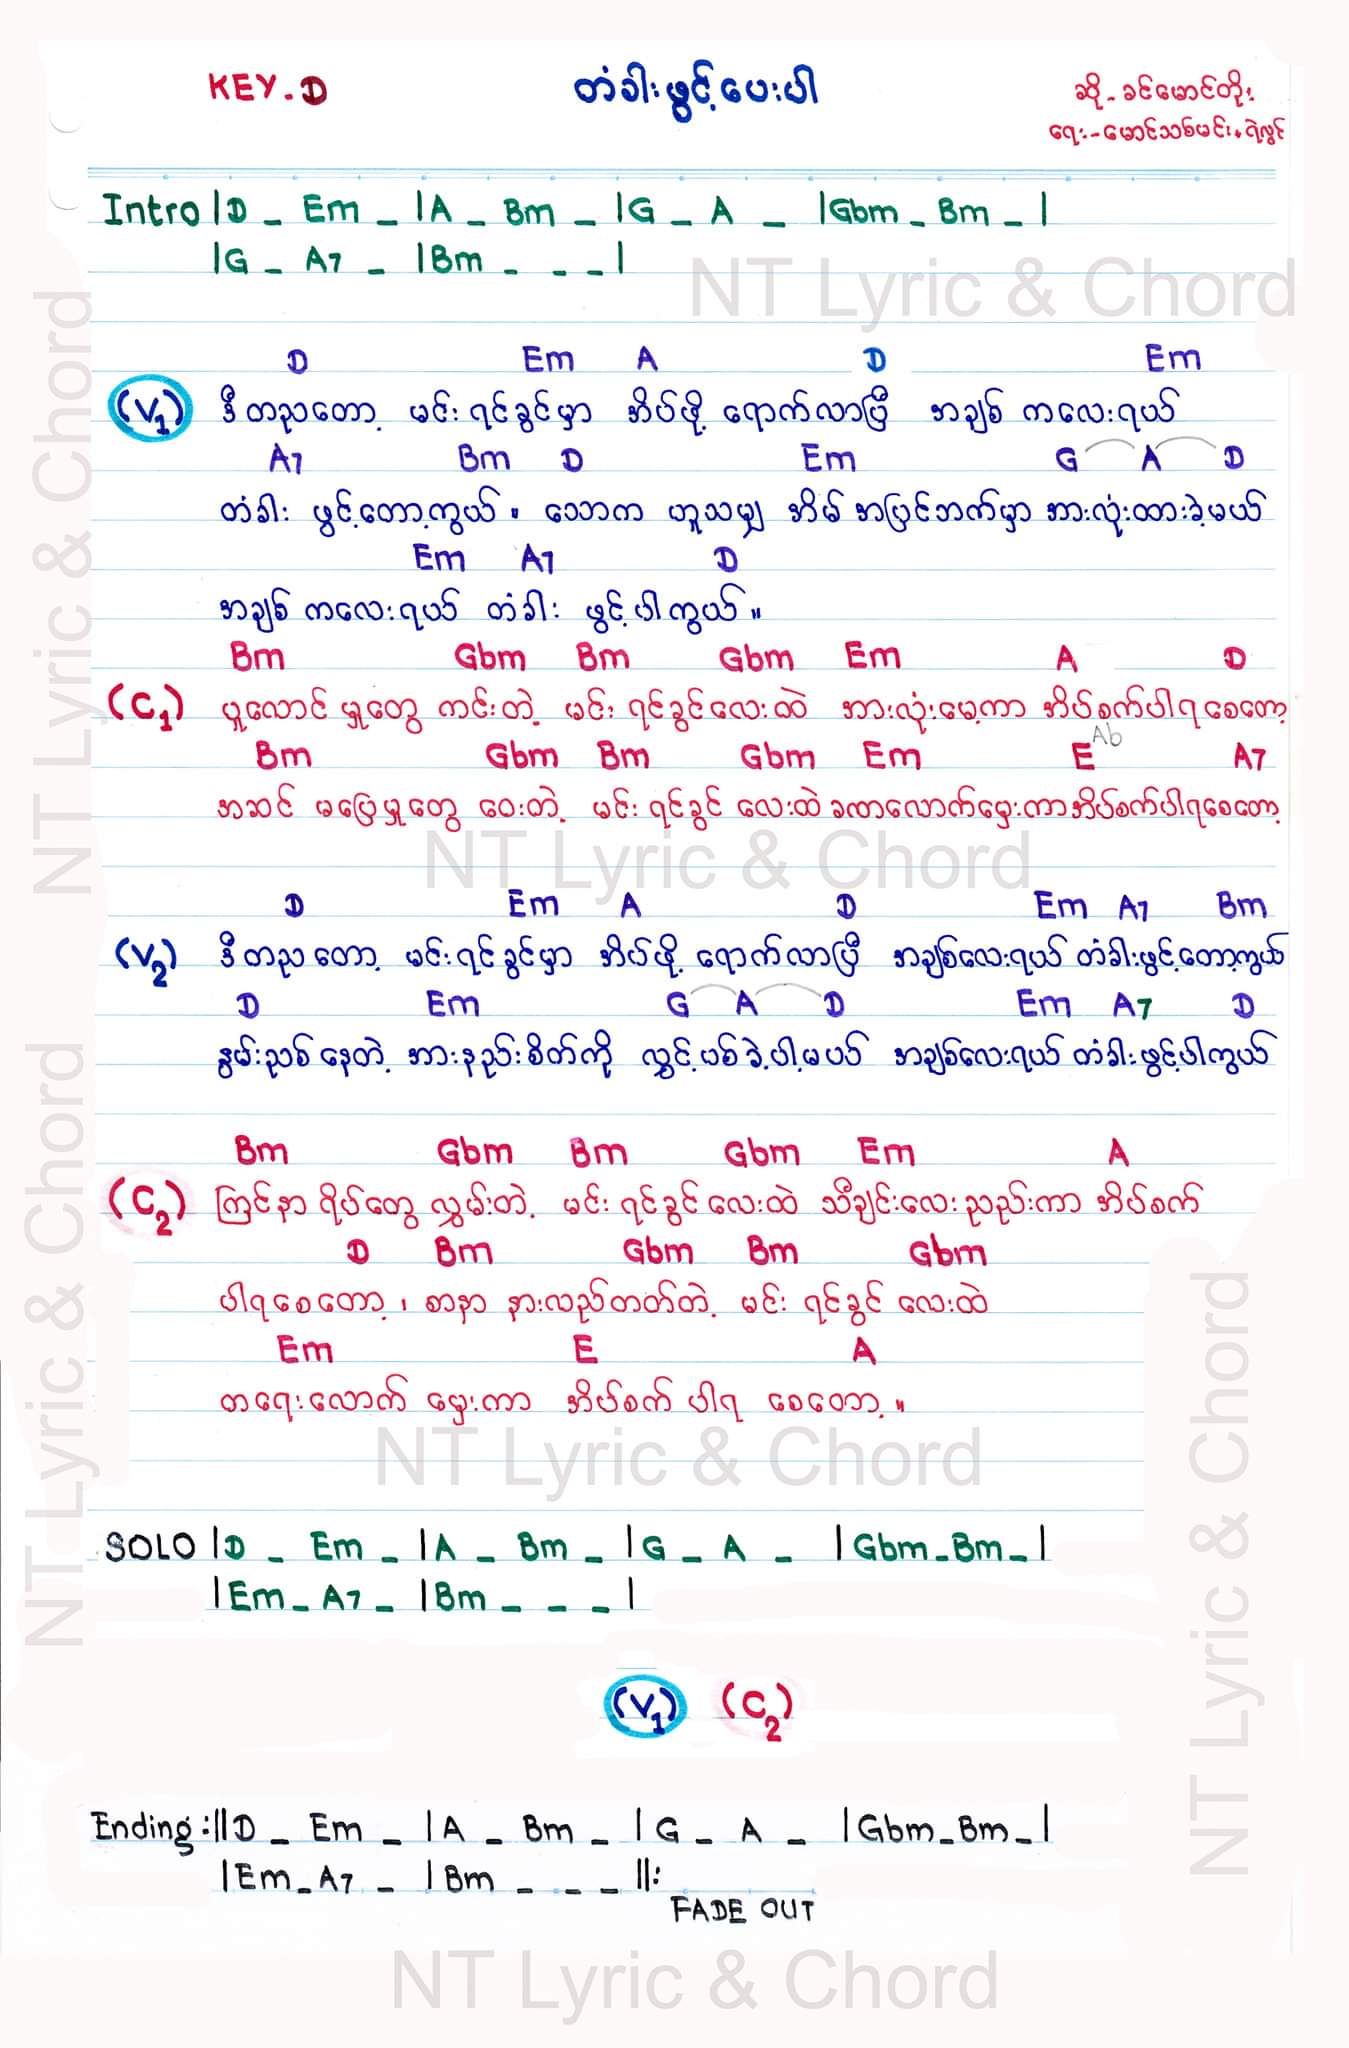 KEY - D
တံခါးဖွင့်ပေးပါ
ဆို - ခင်မောင်တိုး
ရေး - မောင်သစ်မင်း + ရဲလွင်
Intro |D _ Em _ |A _ Bm _ |G _ A _ |Gbm _ Bm _ |
|G _ A7 _ |Bm _ _ _ |
NT Lyric & Chord
D Em A D Em
(V1) ဒီတညတော့ မင်းရင်ခွင်မှာ အိပ်ဖို့ ရောက်လာပြီ အချစ် ကလေးရယ်
A7 Bm D Em G A D
တံခါး ဖွင့်တော့ကွယ် ။ သောက ဟူသမျှ အိမ် အပြင်ဘက်မှာ အားလုံးထားခဲ့မယ်
Em A7 D
အချစ် ကလေးရယ် တံခါး ဖွင့်ပါကွယ် ။
Bm Gbm Bm Gbm Em A D
(C1) ပူလောင် မှုတွေ ကင်းတဲ့ မင်း ရင်ခွင်လေးထဲ အားလုံးမေ့ကာ အိပ်စက်ပါရစေတော့
Bm Gbm Bm Gbm Em E Ab A7
အဆင် မပြေမှုတွေ ဝေးတဲ့ မင်း ရင်ခွင် လေးထဲ ခဏလောက်မှေးကာ အိပ်စက်ပါရစေတော့
NT Lyric & Chord
D Em A D Em A7 Bm
(V2) ဒီတည တော့ မင်းရင်ခွင်မှာ အိပ်ဖို့ ရောက်လာပြီ အချစ်လေးရယ် တံခါးဖွင့်တော့ကွယ်
D Em G A D Em A7 D
နွမ်းညစ်နေတဲ့ အားနည်းစိတ်ကို လွှင့်ပစ်ခဲ့ပါ့မယ် အချစ်လေးရယ် တံခါးဖွင့်ပါကွယ်
Bm Gbm Bm Gbm Em A
(C2) ကြင်နာ ရိပ်တွေ လွှမ်းတဲ့ မင်း ရင်ခွင်လေးထဲ သီချင်းလေး ညည်းကာ အိပ်စက်
D Bm Gbm Bm Gbm
ပါရစေတော့ ၊ စာနာ နားလည်တတ်တဲ့ မင်း ရင်ခွင် လေးထဲ
Em E A
တရေးလောက် မှေးကာ အိပ်စက် ပါရ စေတော့ ။
NT Lyric & Chord
SOLO |D _ Em _ |A _ Bm _ |G _ A _ |Gbm _ Bm _ |
|Em _ A7 _ |Bm _ _ _ |
(V1) (C2)
Ending :||D _ Em _ |A _ Bm _ |G _ A _ |Gbm _ Bm _ |
|Em _ A7 _ |Bm _ _ _ ||:
FADE OUT
NT Lyric & Chord
NT Lyric & Chord
NT Lyric & Chord
NT Lyric & Chord